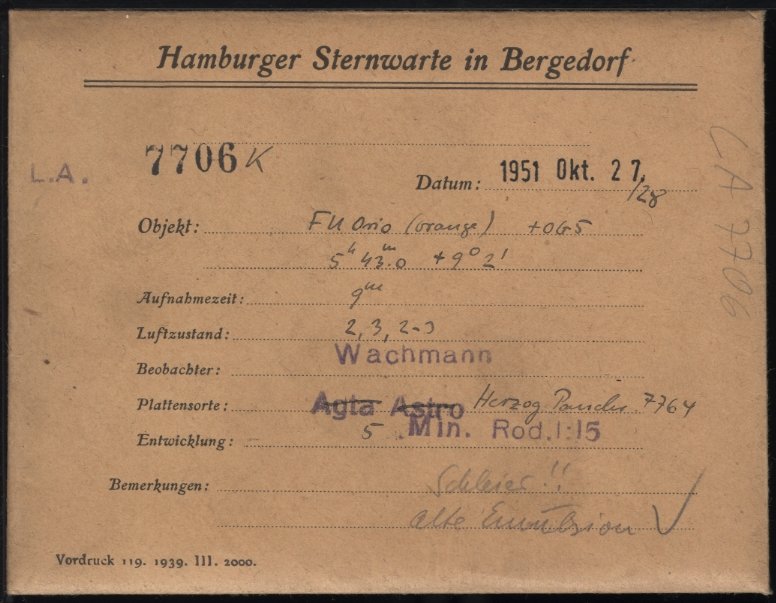 Hamburger Sternwarte in Bergedorf
L.A.
7706 K
Datum: 1951 Okt. 27. /28
LA 7706
Objekt: FU Orio (orange) + OG5
5h 43m.0 + 9° 2'
Aufnahmezeit: 9m
Luftzustand: 2, 3, 2-3
Beobachter: Wachmann
Plattensorte: Agfa Astro Herzog 7764
Entwicklung: 5 Min. Rod. 1:15
Bemerkungen: Schleier!!
alte Emulsion
Vordruck 119. 1939. III. 2000.